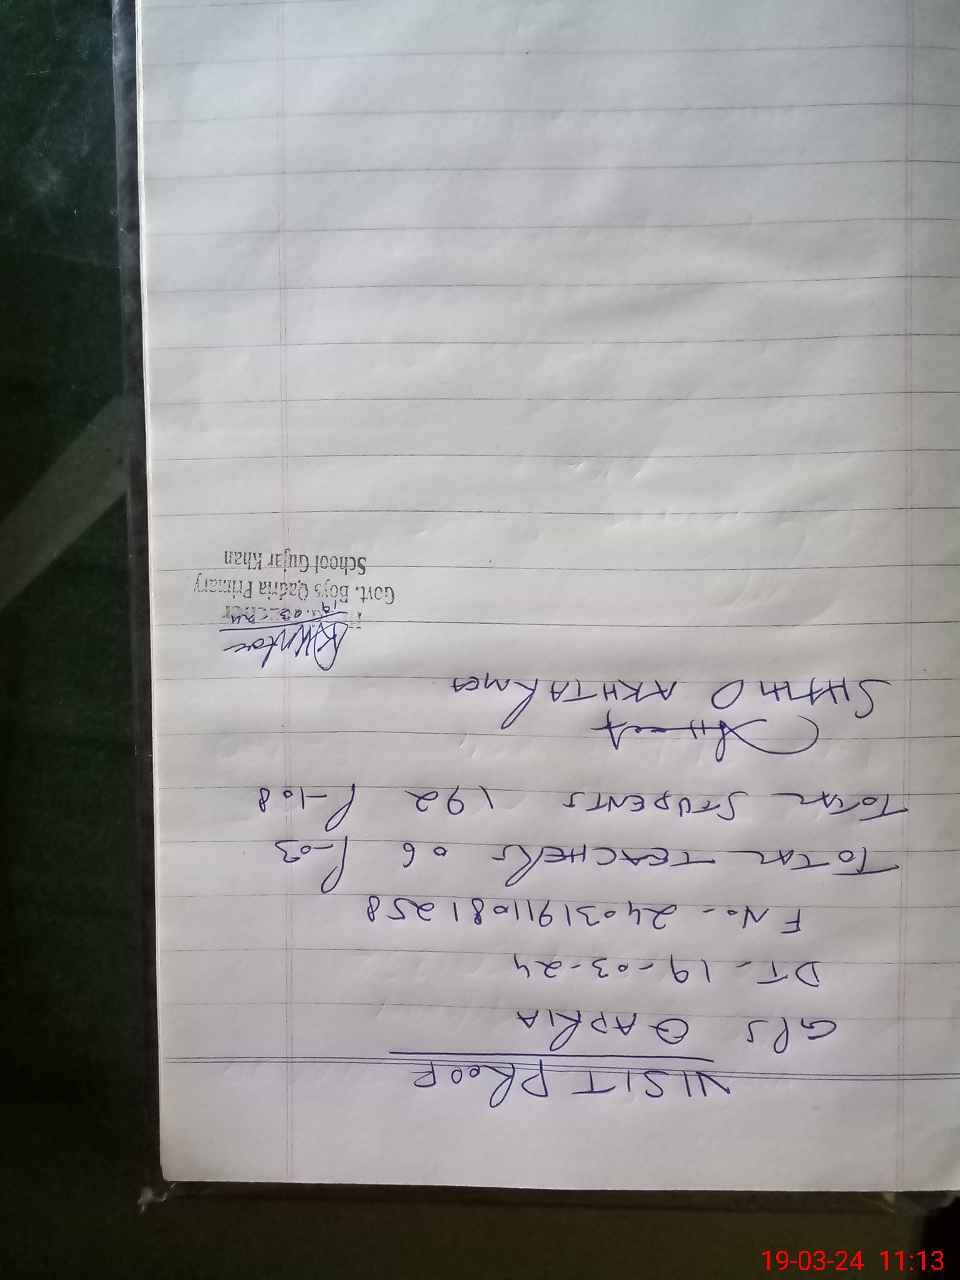 VISIT PROOF
GPS QADRIA
DT- 19-03-24
F No- 24031911081258
TOTAL TEACHERS 06 P-03
TOTAL STUDENTS 192 P-108
AKHTAR
19.03.24
Govt. Boys Qadria Primary
School Gujar Khan
19-03-24 11:13